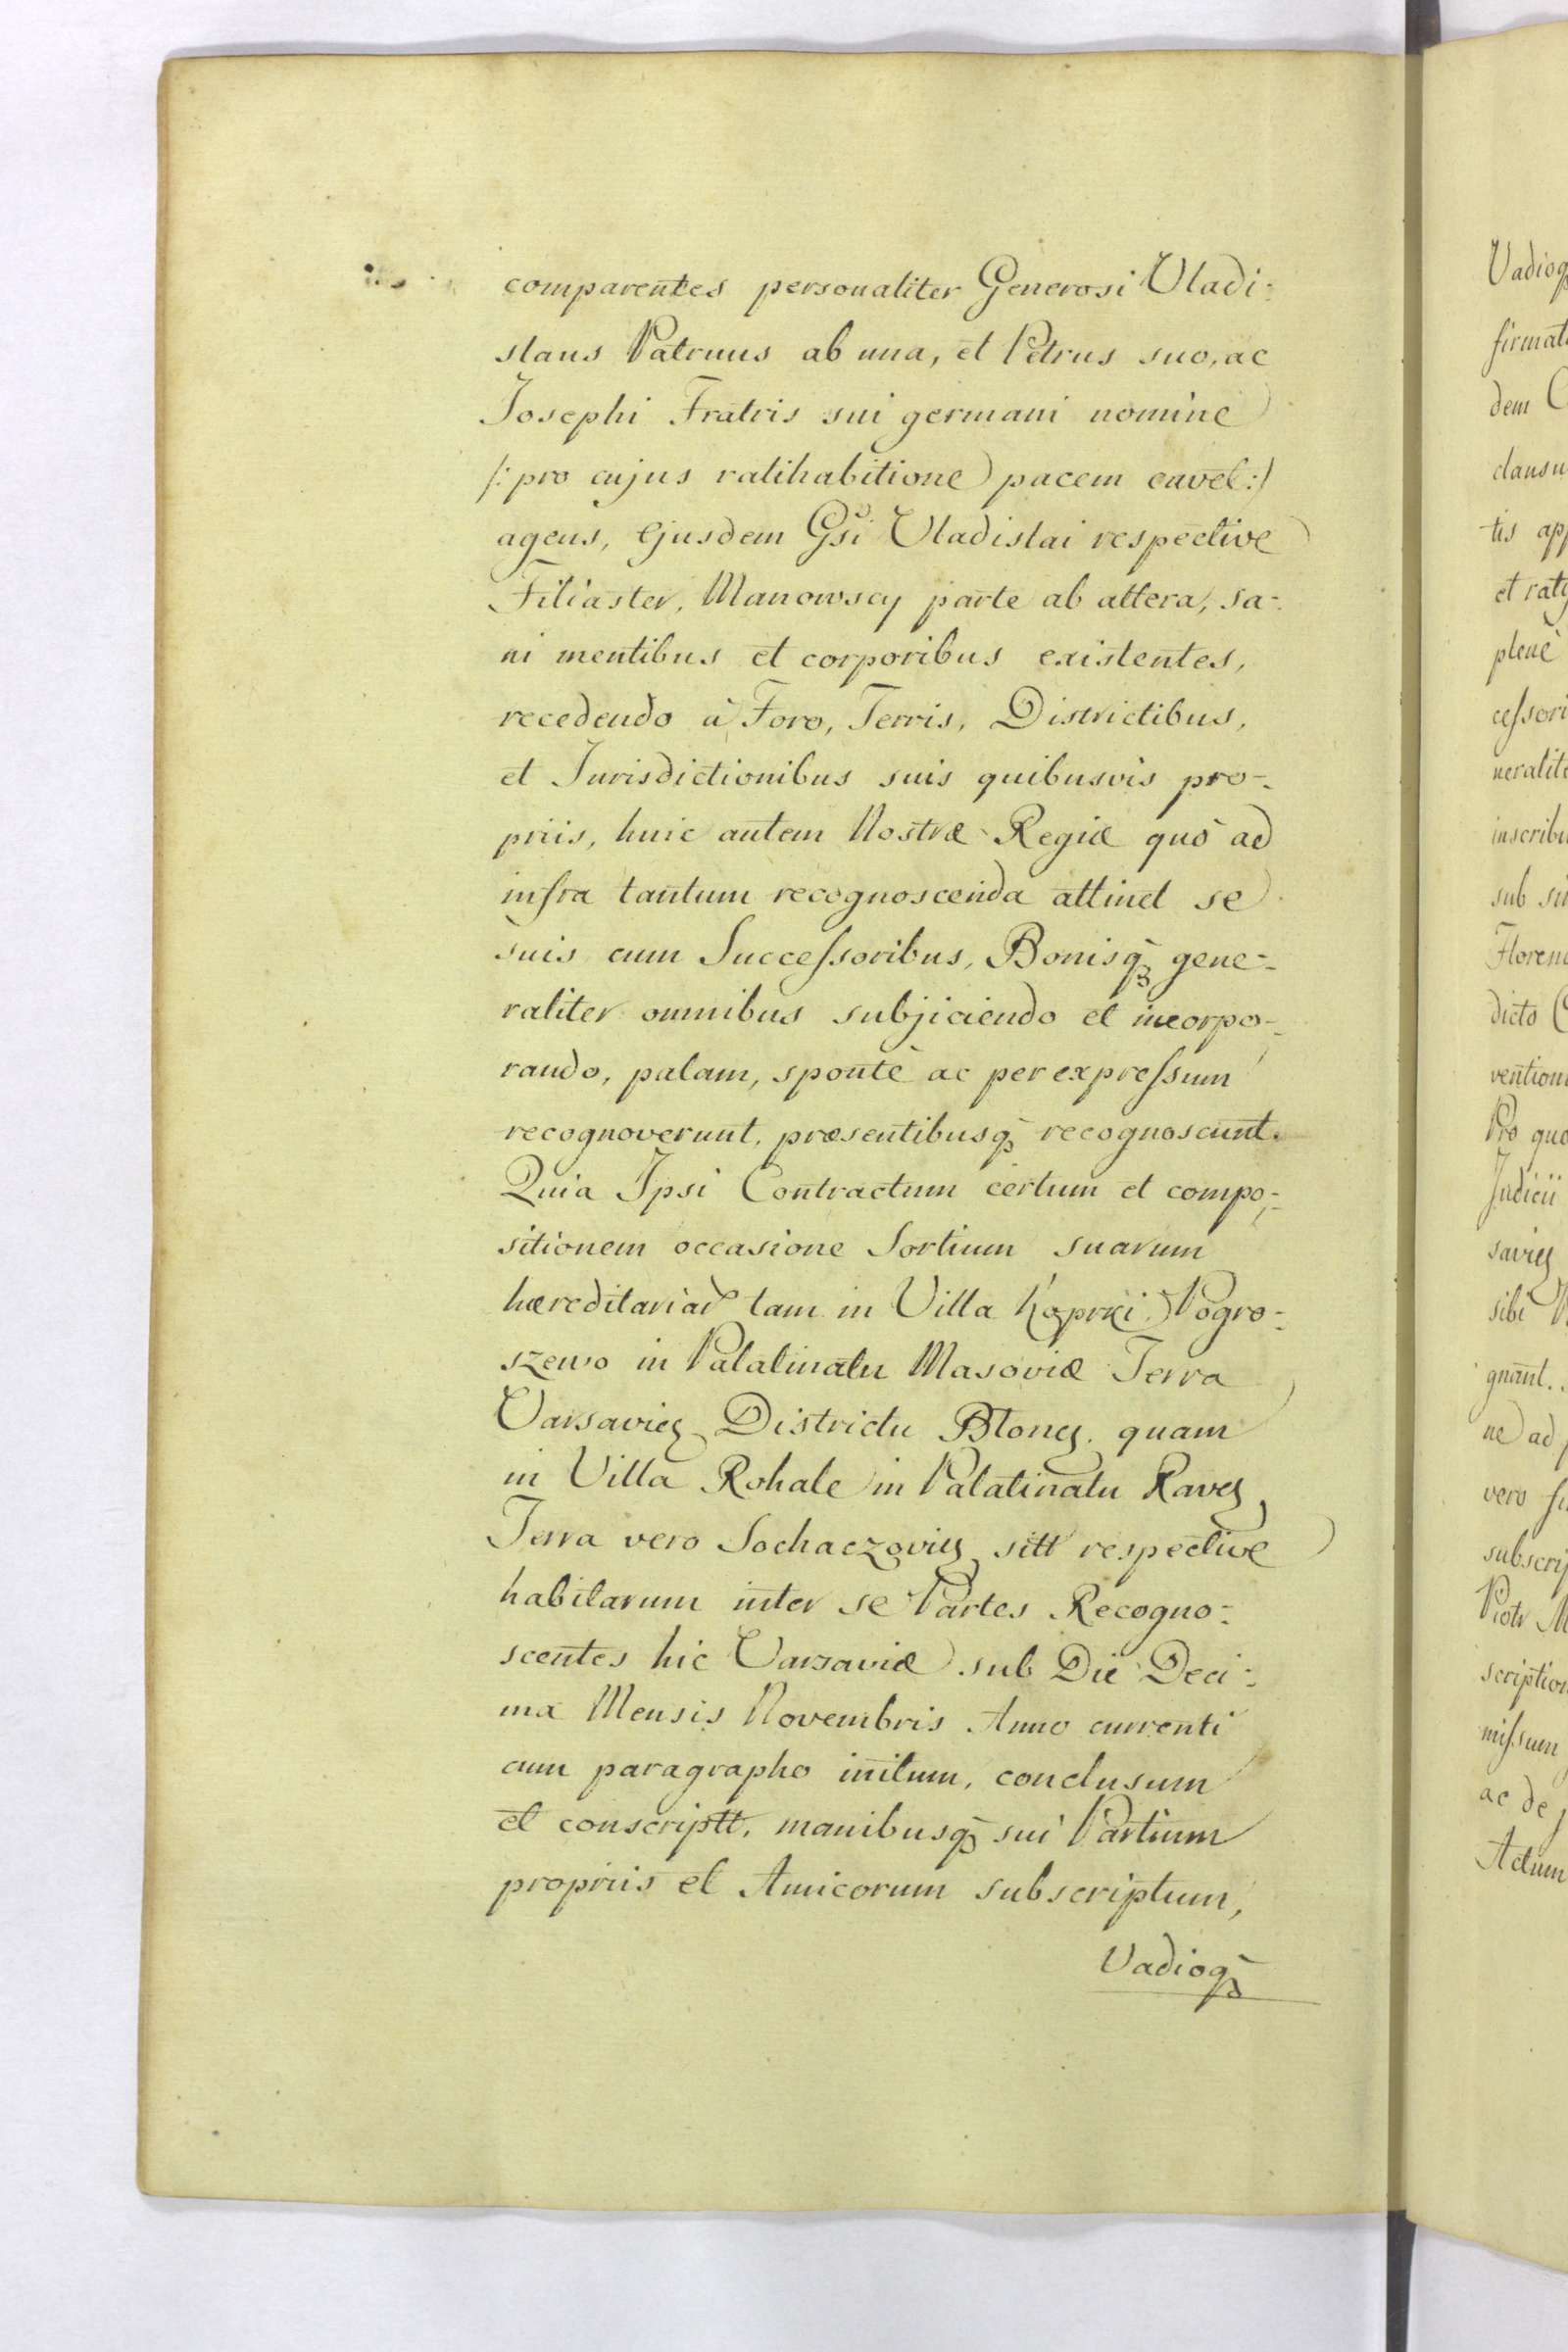 comparentes personaliter Generosi Vladi-
slaus Patruus ab una, et Petrus suo, ac
Josephi Fratris sui germani nomine
/: pro cujus ratihabitione pacem cavet :/
agens, ejusdem Gsi Vladislai respective
Filiaster, Manowscy parte ab altera, sa-
ni mentibus et corporibus existentes,
recedendo à Foro, Terris, Districtibus,
et Jurisdictionibus suis quibusvis pro-
priis, huic autem Nostræ Regiæ quò ad
infra tantum recognoscenda attinet se
suis cum Successoribus, Bonisq3 gene-
raliter omnibus subjiciendo et incorpo-
rando, palam, spontè ac per expressum
recognoverunt, præsentibusq3 recognoscunt.
Quia Ipsi Contractum certum et compo-
sitionem occasione Sortium suarum
hæreditariar tam in Villa Koprki Pogro-
szewo in Palatinatu Masoviæ Terra
Varsavieñ Districtu Bloneñ quam
in Villa Rokale in Palatinatu Raveñ
Terra vero Sochaczovieñ sitt respective
habitarum inter se Partes Recogno-
scentes hic Varsaviæ sub Die Deci-
ma Mensis Novembris Anno currenti
cum paragrapho initum, conclusum
et conscriptt, manibusq3 sui Partium
propriis et Amicorum subscriptum,
Vadioq3
Vadioq
firmat
dem C
clausu
tis app
et rat
plenè
cessori
neralit
inscrib
sub
Floren
dicto
vention
Pro quo
Judicii
savien
sibi
gnant.
ne ad
vero
subscrip
Piotr M
scription
missum
ac de
Actum